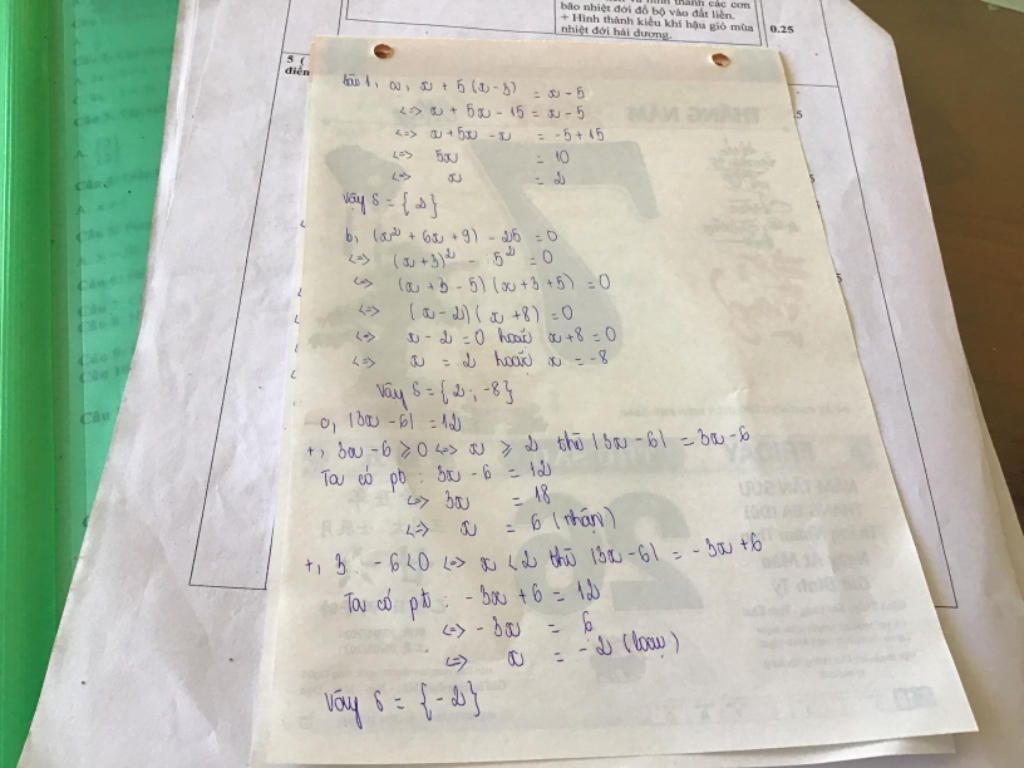 bão nhiệt đới đổ bộ vào đất liền.
+ Hình thành kiểu khí hậu gió mùa
nhiệt đới hải dương.
0.25
5 (
điểm
Bài 1, a, x + 5(x - 3) = x - 5
<=> x + 5x - 15 = x - 5
<=> x + 5x - x = -5 + 15
<=> 5x = 10
<=> x = 2
Vậy S = {2}
b, (x² + 6x + 9) - 25 = 0
<=> (x + 3)² - 5² = 0
<=> (x + 3 - 5)(x + 3 + 5) = 0
<=> (x - 2)(x + 8) = 0
<=> x - 2 = 0 hoặc x + 8 = 0
<=> x = 2 hoặc x = -8
Vậy S = {2; -8}
c, |3x - 6| = 12
+, 3x - 6 ≥ 0 <=> x ≥ 2 thì |3x - 6| = 3x - 6
Ta có pt: 3x - 6 = 12
<=> 3x = 18
<=> x = 6 (nhận)
+, 3 - 6 < 0 <=> x < 2 thì |3x - 6| = -3x + 6
Ta có pt: -3x + 6 = 12
<=> -3x = 6
<=> x = -2 (loại)
Vậy S = {-2}